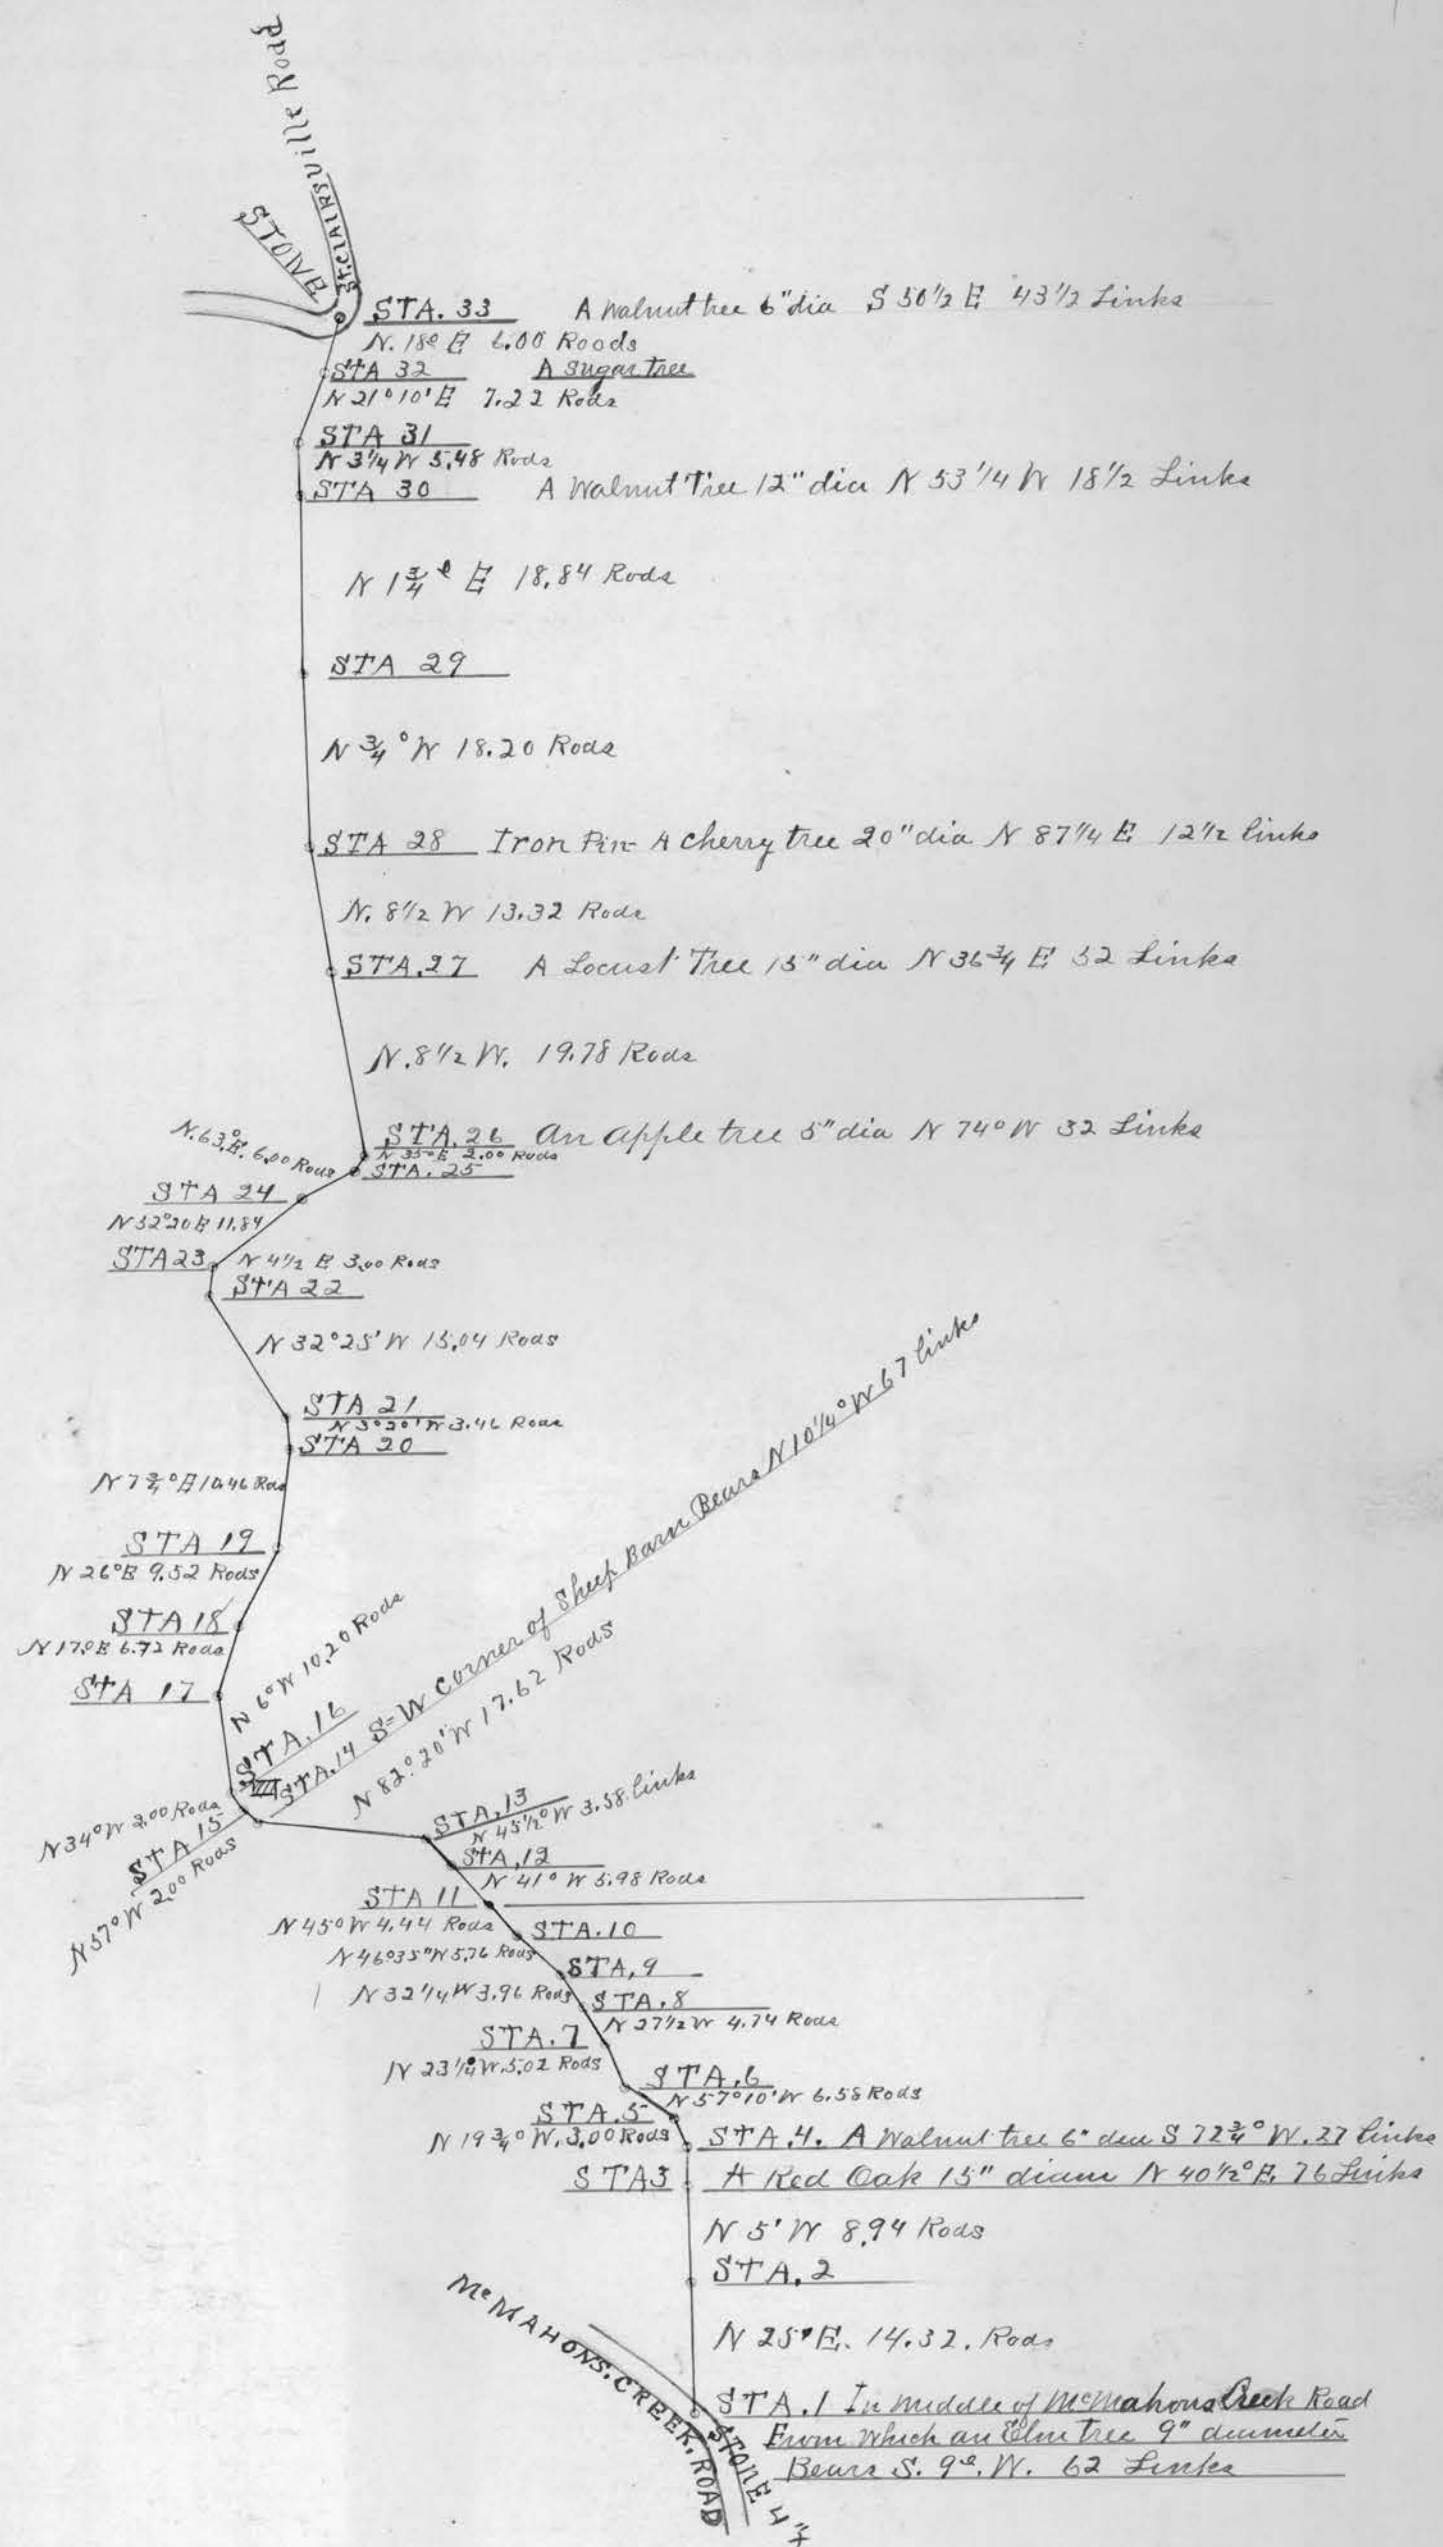 St. CLAIRSVille Road
STONE
STA. 33 A Walnut tree 6" dia S 50 1/2 E 43 1/2 Links
N. 18° E 6.00 Roods
STA 32 A Sugar tree
N 21° 10' E 7.22 Rods
STA 31
N 3 1/4 W 5.48 Rods
STA 30 A Walnut Tree 12" dia N 53 1/4 W 18 1/2 Links
N 1 3/4° E 18.84 Rods
STA 29
N 3/4° W 18.20 Rods
STA 28 Iron Pin - A Cherry tree 20" dia N 87 1/4 E 12 1/2 links
N. 8 1/2 W 13.32 Rods
STA. 27 A Locust Tree 15" dia N 36 3/4 E 52 Links
N. 8 1/2 W. 19.78 Rods
STA. 26 An Apple tree 5" dia N 74° W 32 Links
N 35° E 2.00 Rods
STA. 25
N. 63° E. 6.00 Rods
STA 24
N 52° 20 E 11.84
STA 23
N 4 1/2 E 3.00 Rods
STA 22
N 32° 25' W 15.04 Rods
STA 21
N 5° 20' W 3.46 Rods
STA 20
N 7 3/4° E 10.46 Rods
STA 19
N 26° E 9.52 Rods
STA 18
N 17° E 6.72 Rods
STA 17
N 6° W 10.20 Rods
STA. 16
N 34° W 2.00 Rods
STA 15
N 57° W 2.00 Rods
STA. 14 S=W Corner of Sheep Barn Bears N 10 1/4° W 67 links
N 82° 20' W 17.62 Rods
STA. 13
N 45 1/2° W 3.58 links
STA, 12
N 41° W 5.98 Rods
STA 11
N 45° W 4.44 Rods
STA. 10
N 46° 35" W 5.76 Rods
STA, 9
N 32 1/4 W 3.96 Rods
STA. 8
N 27 1/2 W 4.74 Rods
STA. 7
N 23 1/4° W. 5.02 Rods
STA. 6
N 57° 10' W 6.58 Rods
STA. 5
N 19 3/4° W. 3.00 Rods
STA. 4. A Walnut tree 6" dia S 72 3/4° W. 27 links
STA 3 A Red Oak 15" diam N 40 1/2° E. 76 Links
N 5' W 8.94 Rods
STA. 2
N 25' E. 14.32. Rods
STA. 1 In middle of McMahons Creek Road
From Which an Elm tree 9" diameter
Bears S. 9°. W. 62 Links
McMAHONS. CREEK. ROAD
STONE